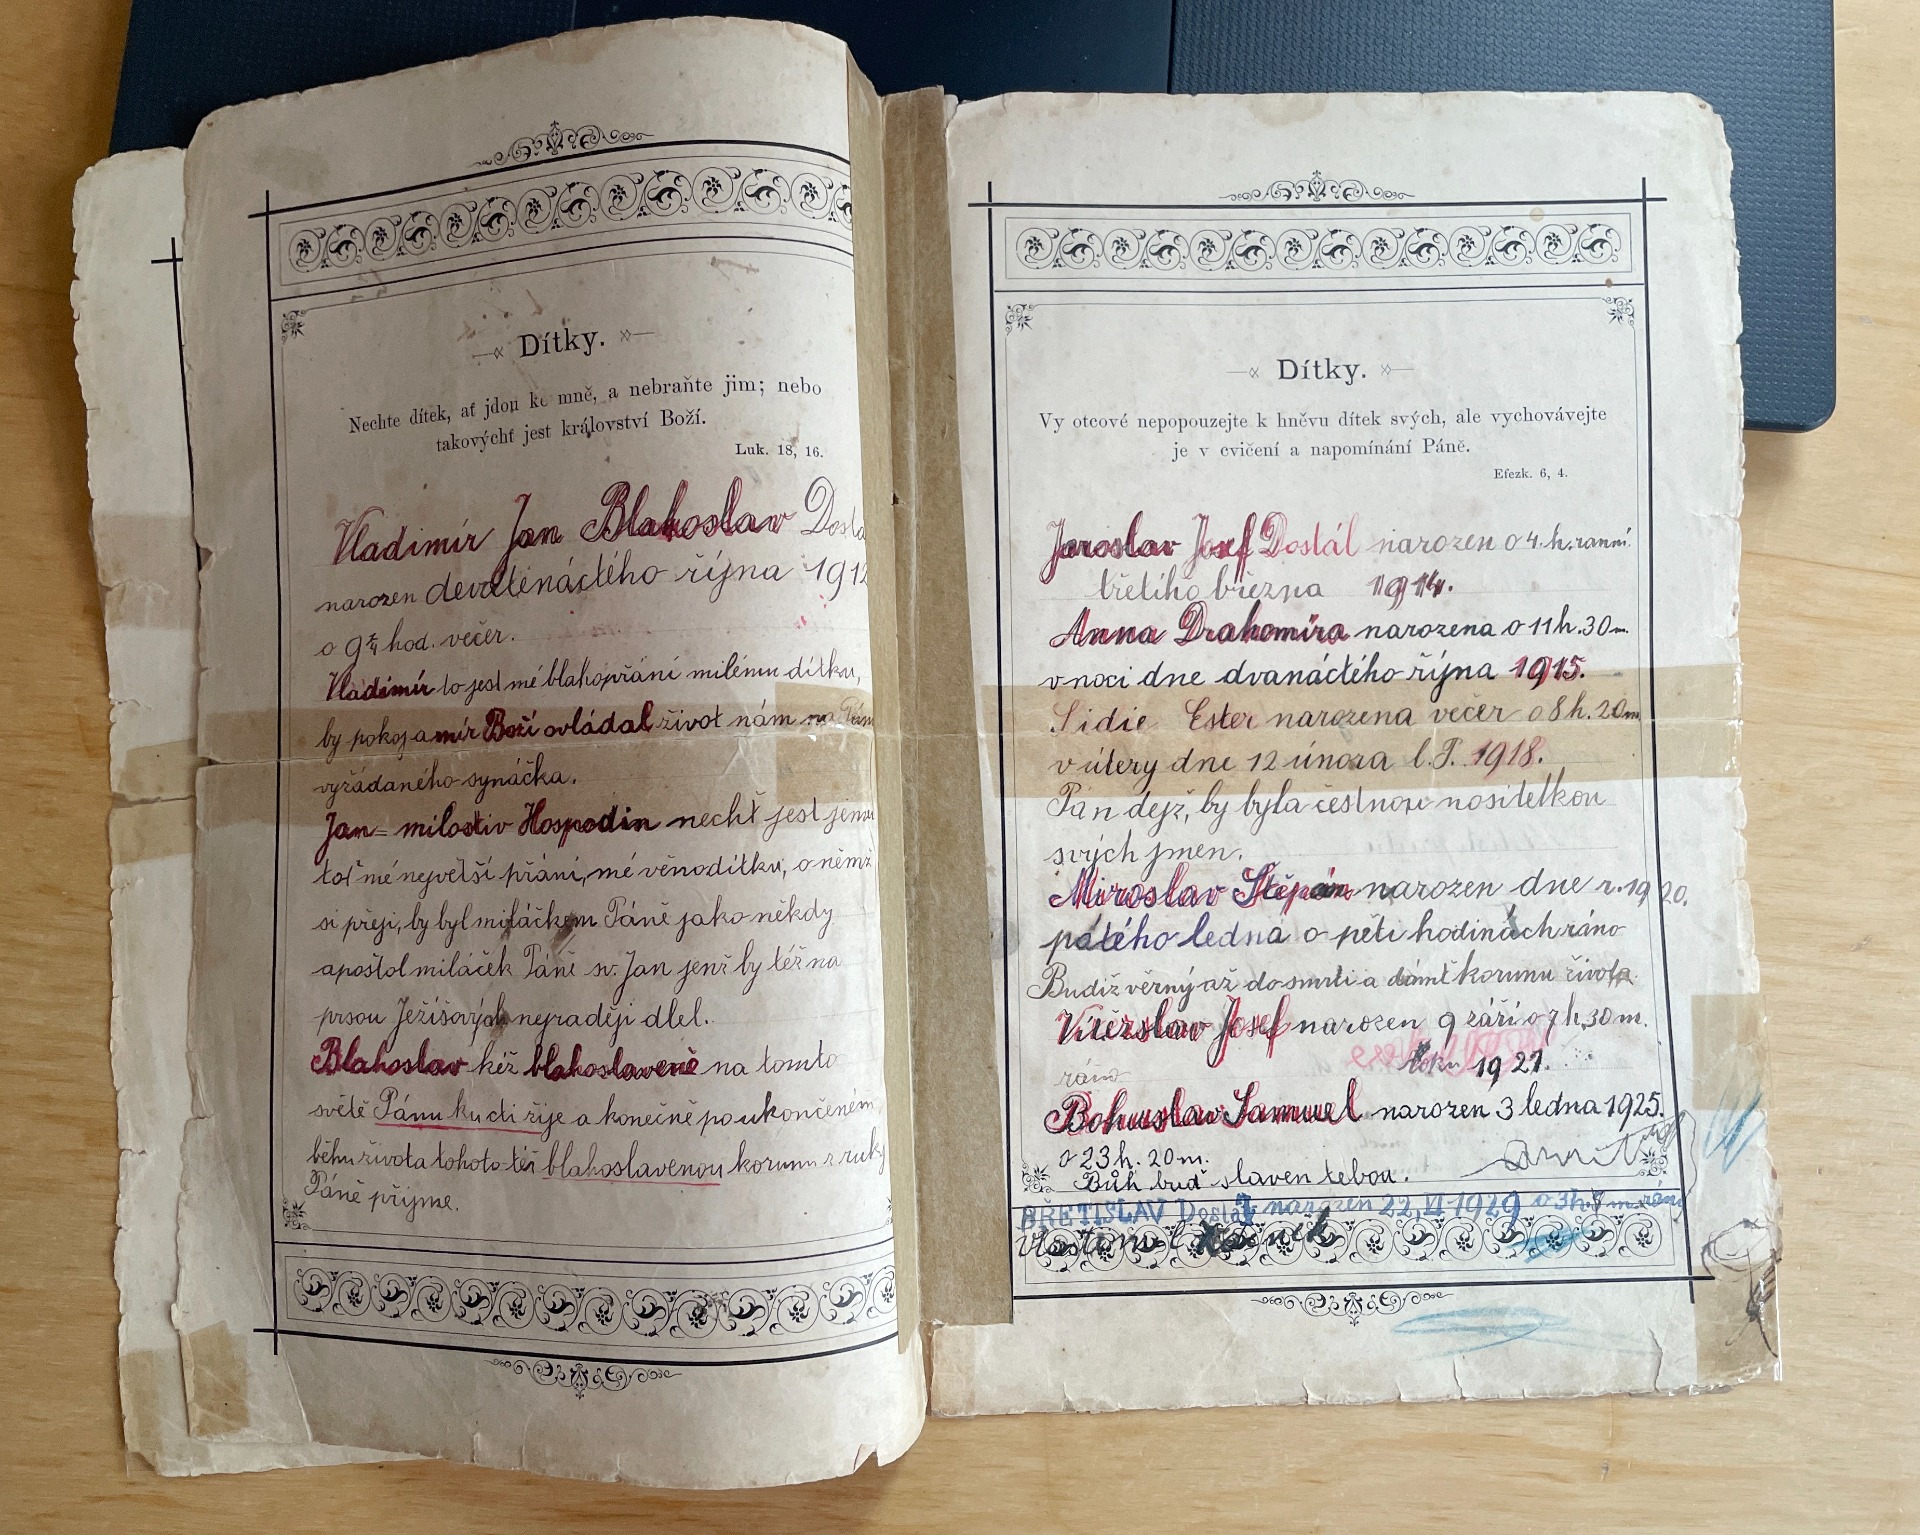 Dítky.
Nechte dítek, ať jdou ke mně, a nebraňte jim; nebo
takovýchť jest království Boží.
Luk. 18, 16.
Vladimír Jan Blahoslav Dosta
narozen devatenáctého října 1912
o 9 hod. večer.
Vladimír to jest mé blahopřání milému dítku,
by pokoj a mír Boží ovládal život nám na Pánu
vyžádaného synáčka.
Jan = milostiv Hospodin nechť jest jemu
toť mé největší přání, mé věno dítku, o němž
si přeji, by byl miláčkem Páně jako někdy
apoštol miláček Páně sv. Jan jenž by též na
prsou Ježíšových nejraději dlel.
Blahoslav kéž blahoslaveně na tomto
světě Pánu ku cti žije a konečně po ukončeném
běhu života tohoto též blahoslavenou korunu z ruky
Páně přijme.
Dítky.
Vy otcové nepopouzejte k hněvu dítek svých, ale vychovávejte
je v cvičení a napomínání Páně.
Efezk. 6, 4.
Jaroslav Josef Dostál narozen o 4. h. ranní
třetího března 1914.
Anna Drahomíra narozena o 11 h. 30 m.
v noci dne dvanáctého října 1915.
Lidie Ester narozena večer o 8 h. 20 m
v úterý dne 12 února l. P. 1918.
Pán dejž, by byla čestnou nositelkou
svých jmen.
Miroslav Štěpán narozen dne r. 1920.
pátého ledna o pěti hodinách ráno
Budiž věrný až do smrti a dámť korunu života
Vítězslav Josef narozen 9 září o 7 h. 30 m.
ráno roku 1921.
Bohuslav Samuel narozen 3 ledna 1925.
o 23 h. 20 m.
Bůh buď slaven tebou.
BŘETISLAV Dostál narozen 22. VI 1929 o 3 h. m ráno
Vlastimil